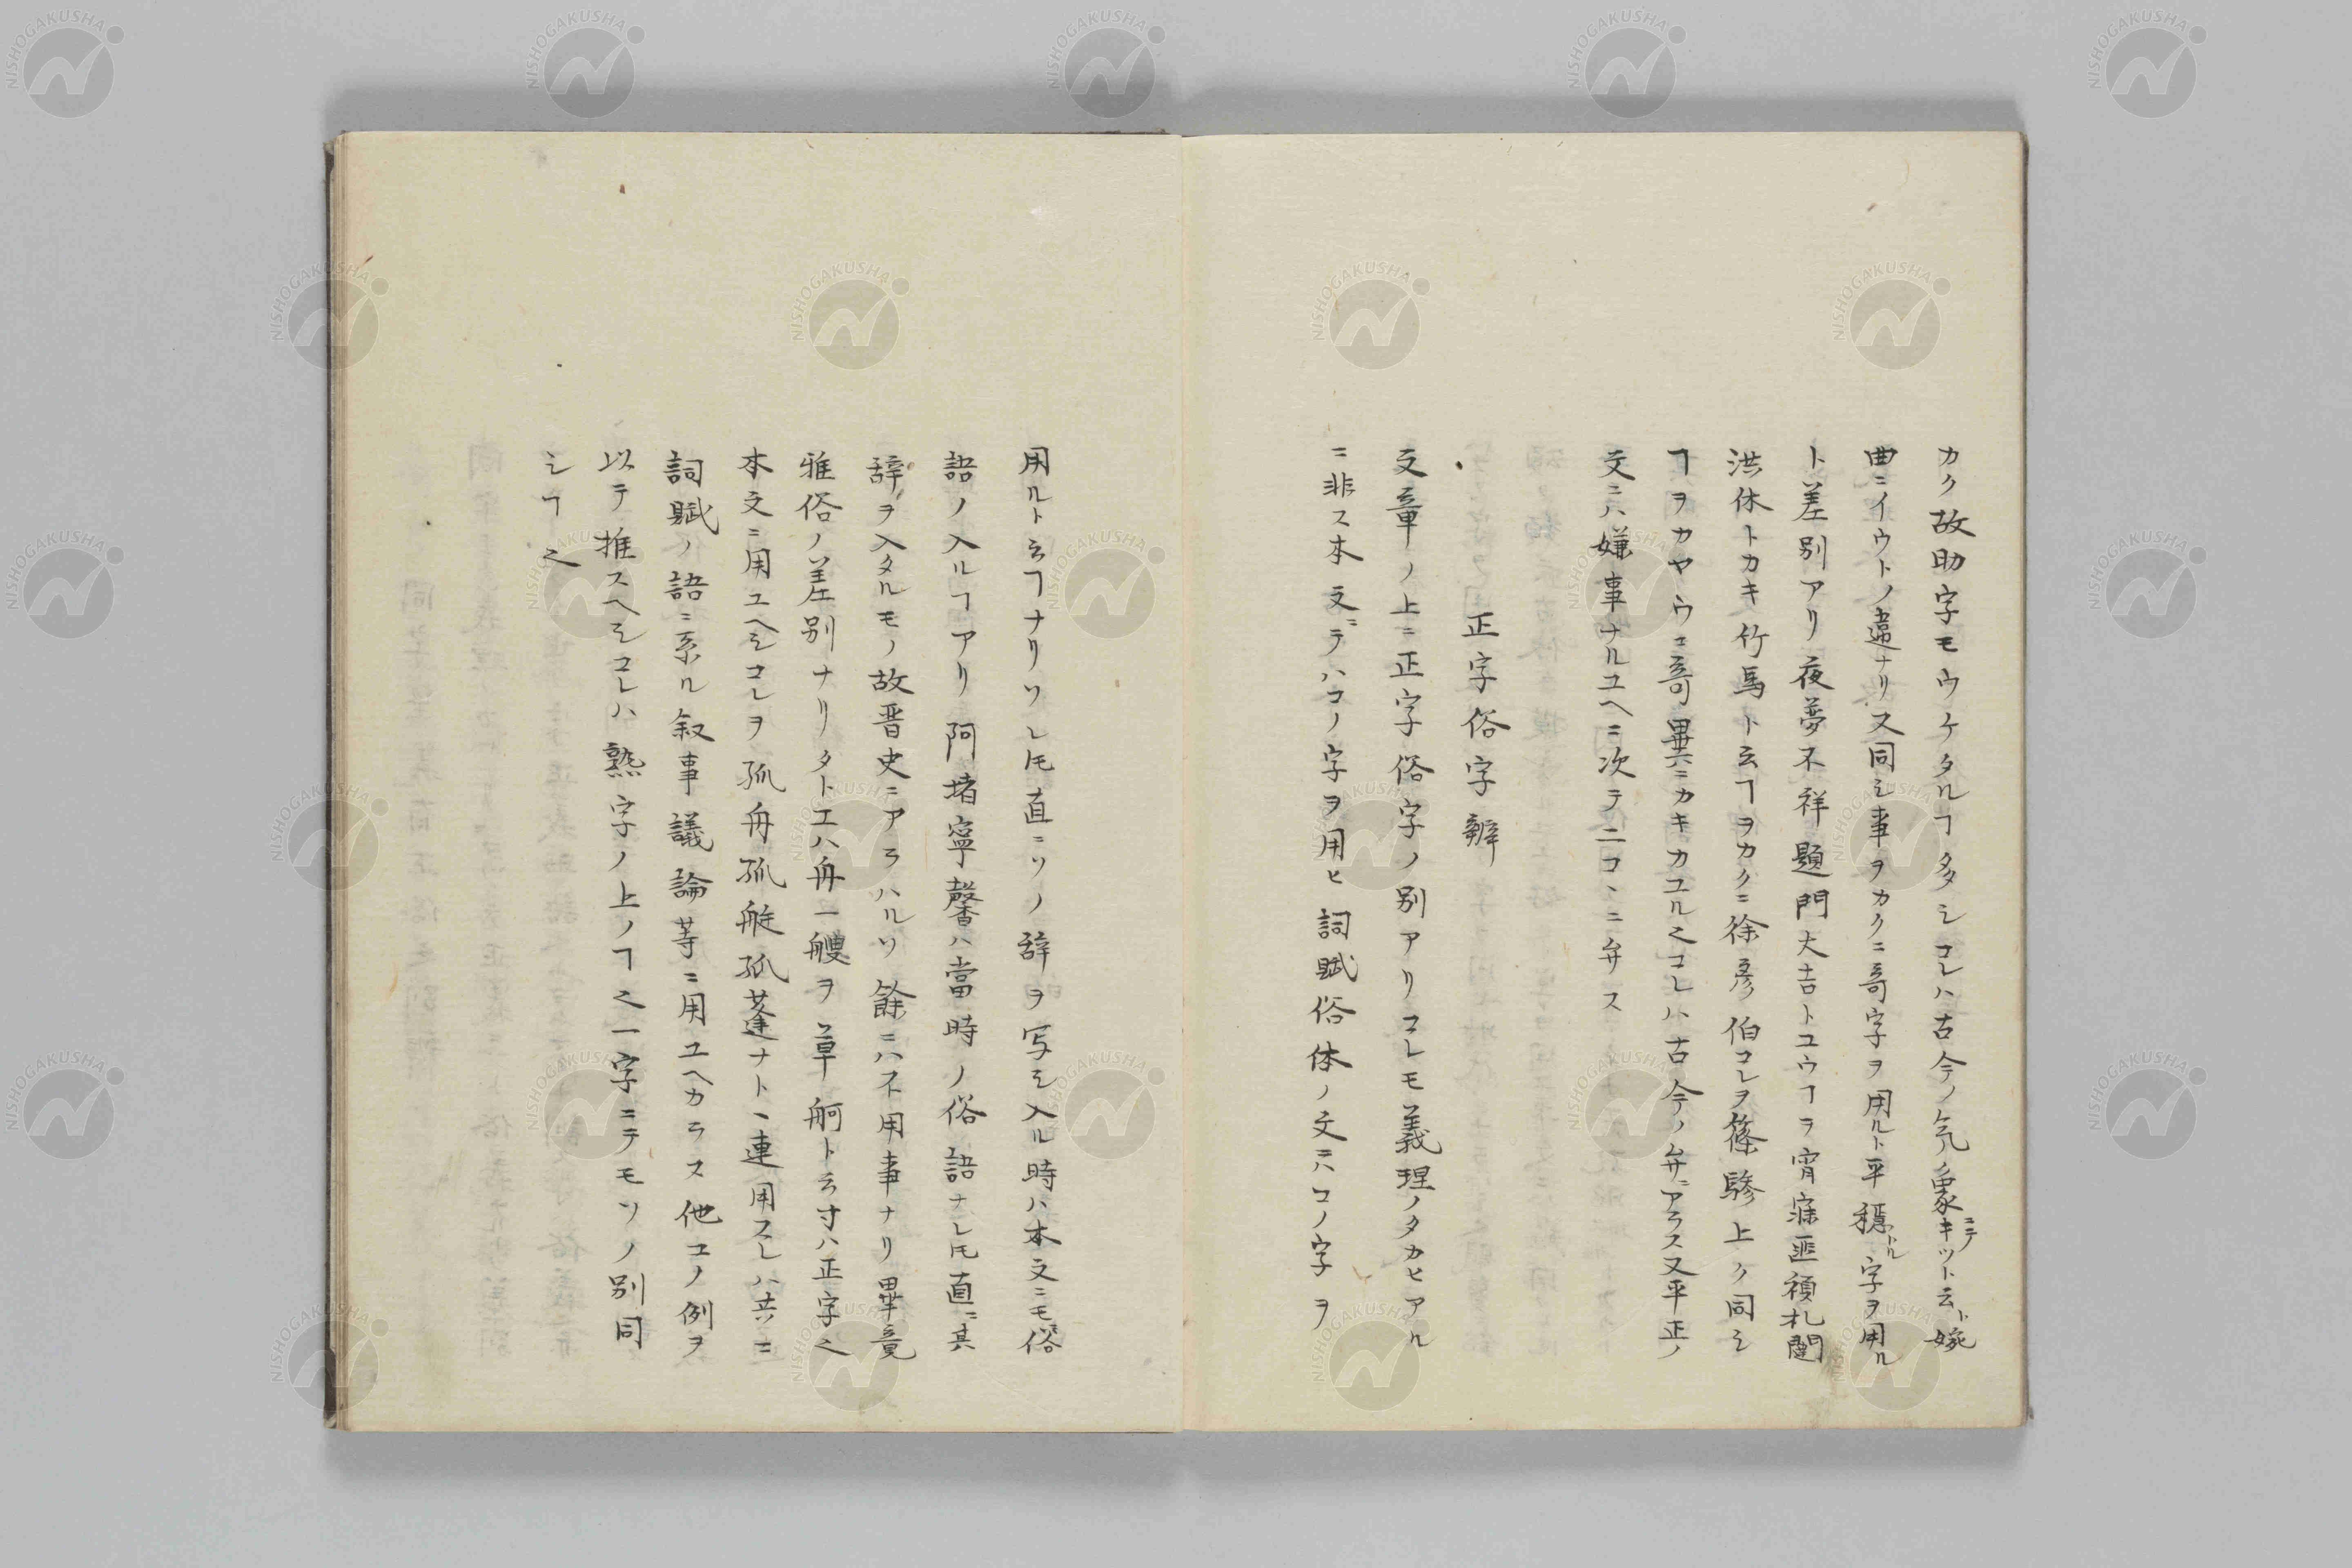 カク故助字モウケタルヿ多シコレハ古今ノ気象ノキツト云ト婉
曲ニイウトノ違ナリ又同シ事ヲカクニ奇字ヲ用ルト平穏ナル字ヲ用ル
ト差別アリ夜夢不祥題門大吉トユウヿヲ宵寐匪禎札闥
洪休トカキ竹馬ト云ヿヲカクニ徐彦伯コレヲ篠驂上ク同シ
ヿヲカヤウニ奇異ニカキカユル之コレハ古今ノ弁ニアラス又平正ノ
文ニハ嫌事ナルユヘニ次テニコヽニ弁ス
正字俗字辨
文章ノ上ニ正字俗字ノ別アリコレモ義理ノタカヒアル
ニ非ス本文ニテハコノ字ヲ用ヒ詞賦俗体ノ文ニハコノ字ヲ
用ルト云ヿナリソレ𪜈直ニソノ辞ヲ写シ入ル時ハ本文ニモ俗
語ノ入ルヿアリ阿堵寧馨ハ當時ノ俗語ナレ𪜈直ニ其
辞ヲ入タルモノ故晋史ニアラハルソ餘ニハ不用事ナリ畢竟
雅俗ノ差別ナリタトエハ舟一艘ヲ草舸ト云寸ハ正字之
本文ニ用ユヘシコレヲ孤舟孤艇孤蓬ナトヽ連用スレハ共ニ
詞賦ノ語ニ系ル叙事議論等ニ用ユヘカラス他コノ例ヲ
以テ推スヘシコレハ熟字ノ上ノヿ之一字ニテモソノ別同
シヿ之